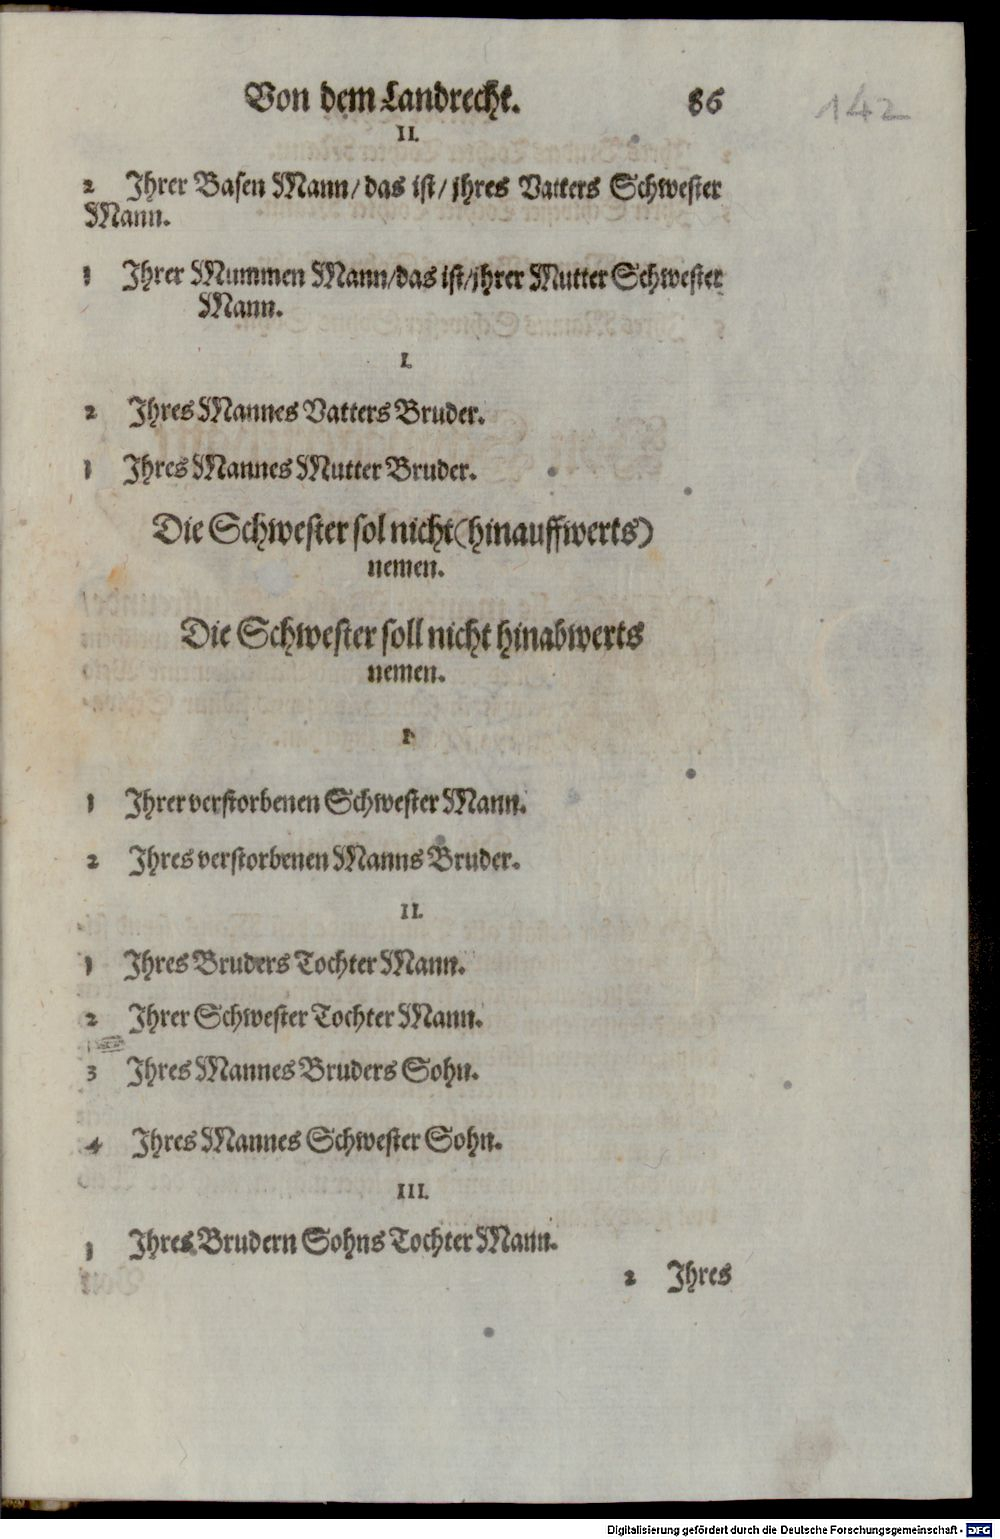 Von dem Landrecht. 86 142
II.
2 Ihrer Basen Mann/ das ist/ jhres Vatters Schwester
Mann.
1 Ihrer Mummen Mann/das ist/jhrer Mutter Schwester
Mann.
I.
2 Ihres Mannes Vatters Bruder.
1 Ihres Mannes Mutter Bruder.
Die Schwester sol nicht (hinauffwerts)
nemen.
Die Schwester soll nicht hinabwerts
nemen.
I.
1 Ihrer verstorbenen Schwester Mann.
2 Ihres verstorbenen Manns Bruder.
II.
1 Ihres Bruders Tochter Mann.
2 Ihrer Schwester Tochter Mann.
3 Ihres Mannes Bruders Sohn.
4 Ihres Mannes Schwester Sohn.
III.
1 Ihres Brudern Sohns Tochter Mann.
2 Ihres
Digitalisierung gefördert durch die Deutsche Forschungsgemeinschaft - DFG